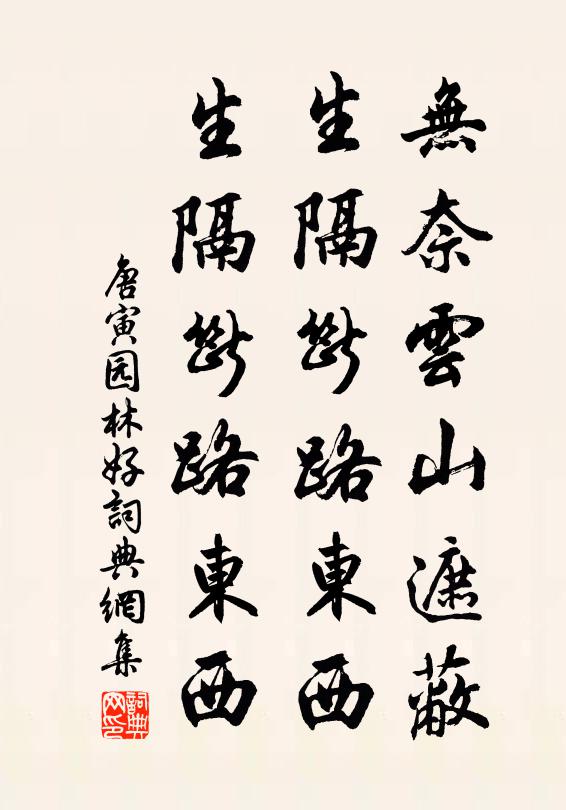 無奈雲山遮蔽
生隔斷路東西
生隔斷路東西
唐寅园林好詞典網集
詞典網印